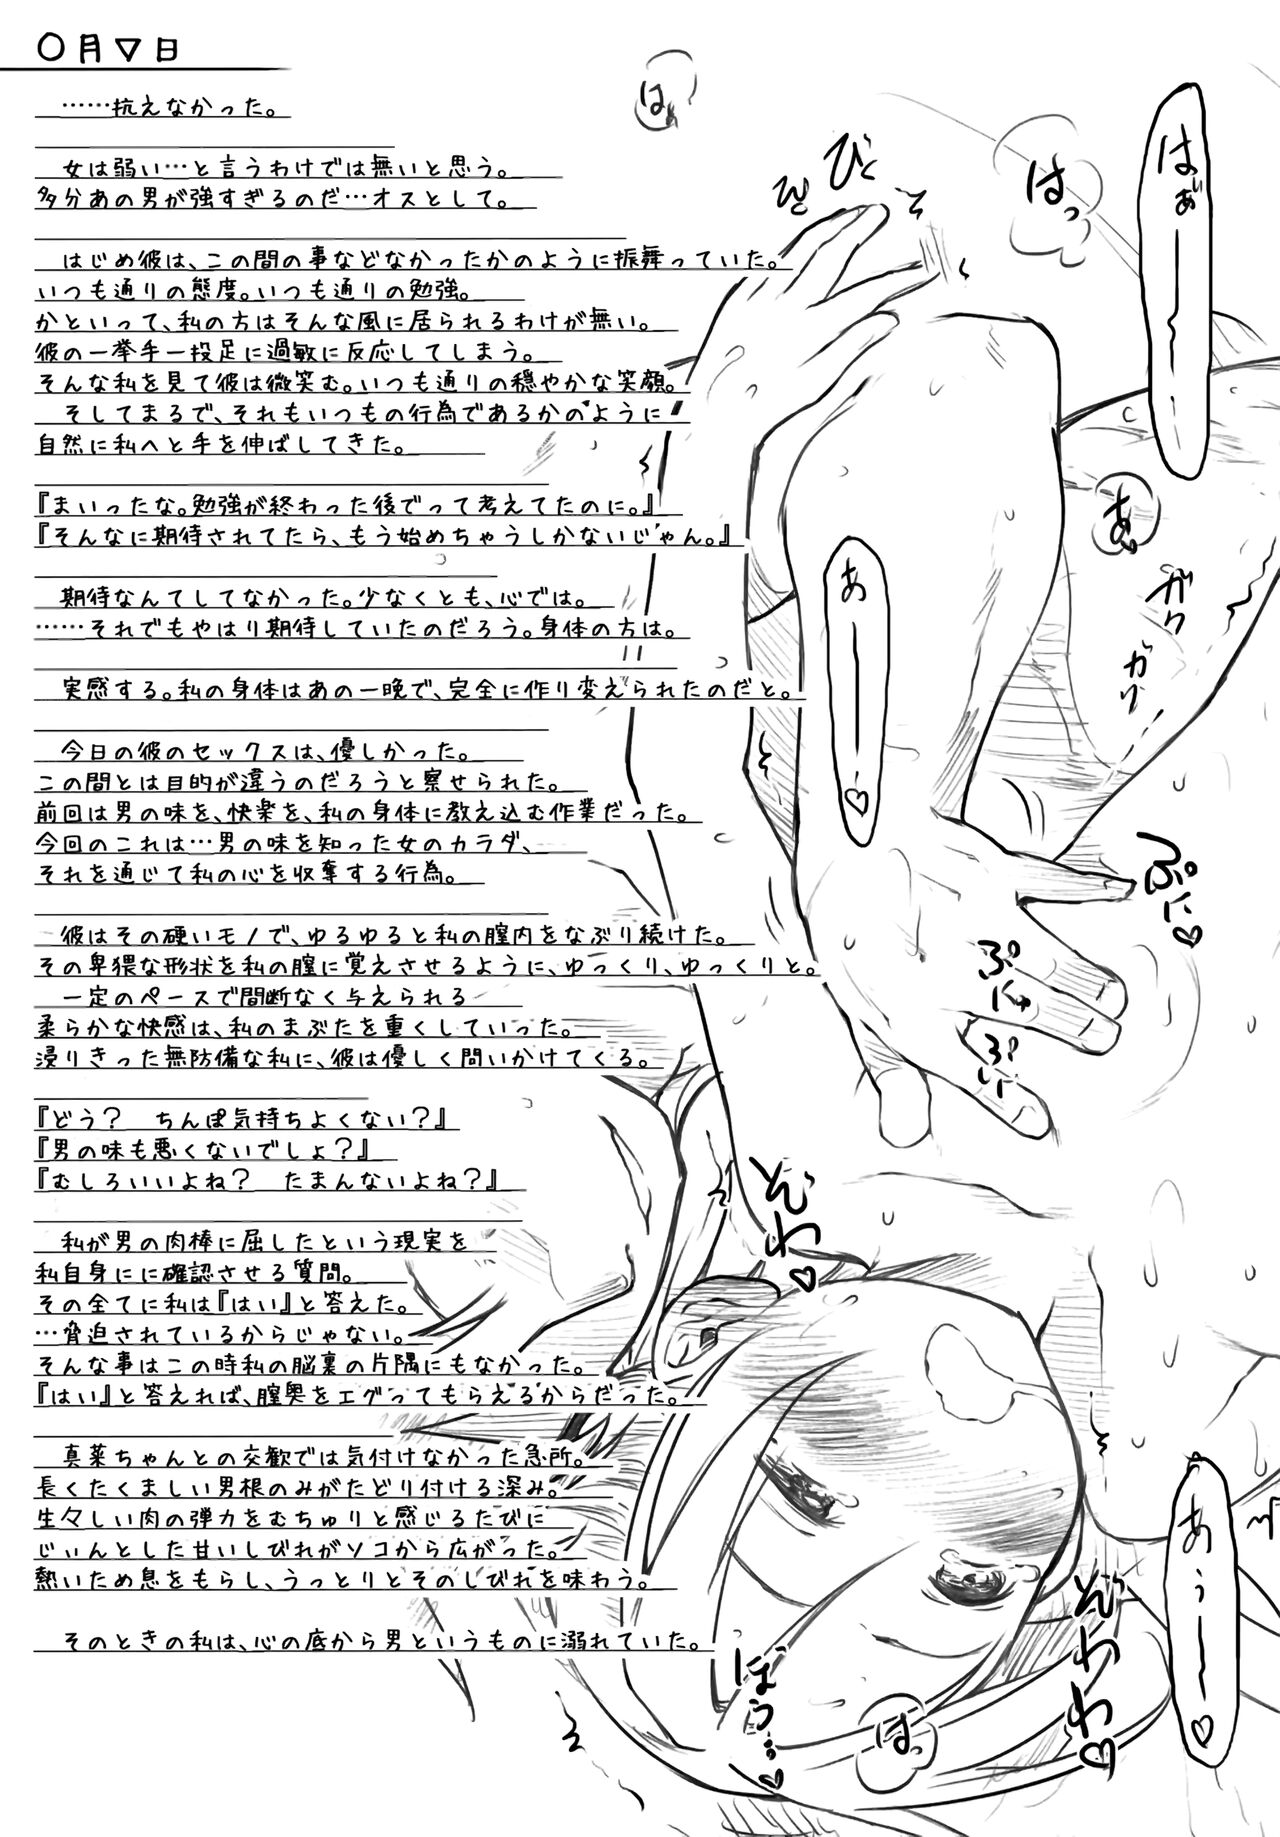 〇月▽日
……抗えなかった。
女は弱い…と言うわけでは無いと思う。
多分あの男が強すぎるのだ…オスとして。
はじめ彼は、この間の事などなかったかのように振舞っていた。
いつも通りの態度。いつも通りの勉強。
かといって、私の方はそんな風に居られるわけが無い。
彼の一挙手一投足に過敏に反応してしまう。
そんな私を見て彼は微笑む。いつも通りの穏やかな笑顔。
そしてまるで、それもいつもの行為であるかのように
自然に私へと手を伸ばしてきた。
『まいったな。勉強が終わった後でって考えてたのに。』
『そんなに期待されてたら、もう始めちゃうしかないじゃん。』
期待なんてしてなかった。少なくとも、心では。
……それでもやはり期待していたのだろう。身体の方は。
実感する。私の身体はあの一晩で、完全に作り変えられたのだと。
今日の彼のセックスは、優しかった。
この間とは目的が違うのだろうと察せられた。
前回は男の味を、快楽を、私の身体に教え込む作業だった。
今回のこれは…男の味を知った女のカラダ、
それを通じて私の心を収奪する行為。
彼はその硬いモノで、ゆるゆると私の膣内をなぶり続けた。
その卑猥な形状を私の膣に覚えさせるように、ゆっくり、ゆっくりと。
一定のペースで間断なく与えられる
柔らかな快感は、私のまぶたを重くしていった。
浸りきった無防備な私に、彼は優しく問いかけてくる。
『どう？　ちんぽ気持ちよくない？』
『男の味も悪くないでしょ？』
『むしろいいよね？　たまんないよね？』
私が男の肉棒に屈したという現実を
私自身にに確認させる質問。
その全てに私は『はい』と答えた。
…脅迫されているからじゃない。
そんな事はこの時私の脳裏の片隅にもなかった。
『はい』と答えれば、膣奥をエグってもらえるからだった。
真菜ちゃんとの交歓では気付けなかった急所。
長くたくましい男根のみがたどり付ける深み。
生々しい肉の弾力をむちゅりと感じるたびに
じぃんとした甘いしびれがソコから広がった。
熱いため息をもらし、うっとりとそのしびれを味わう。
そのときの私は、心の底から男というものに溺れていた。
はぁ━━
はっ
は
びく
あ
ガク
ガク
あ━━♡
ぷに♡
ぷにゅ
ぷに
ぞわ♡
あぅ━━♡
ぞわわ♡
ぼう…♡
はっ